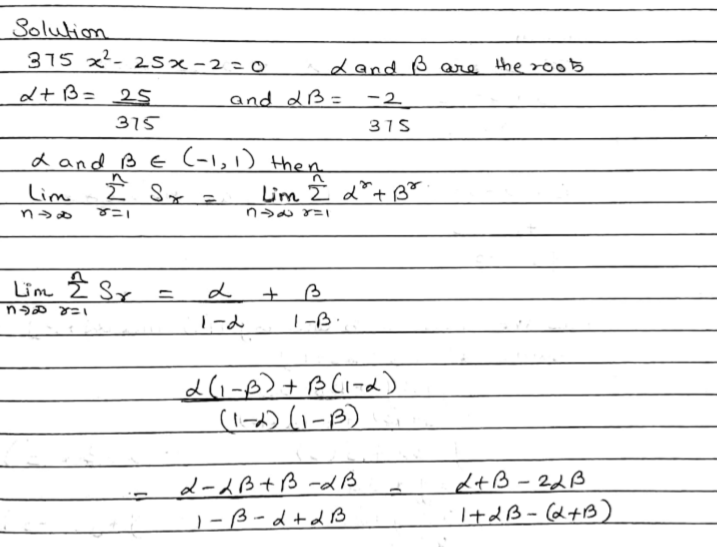 Solution
375 x² - 25x - 2 = 0   α and β are the roots
α + β = 25/375 and αβ = -2/375
α and β ∈ (-1, 1) then
Lim n→∞ Σ r=1 n Sr = Lim n→∞ Σ r=1 n α^r + β^r
Lim n→∞ Σ r=1 n Sr = α/(1-α) + β/(1-β).
α(1-β) + β(1-α) / (1-α)(1-β)
= α - αβ + β - αβ / 1 - β - α + αβ = α + β - 2αβ / 1 + αβ - (α+β)